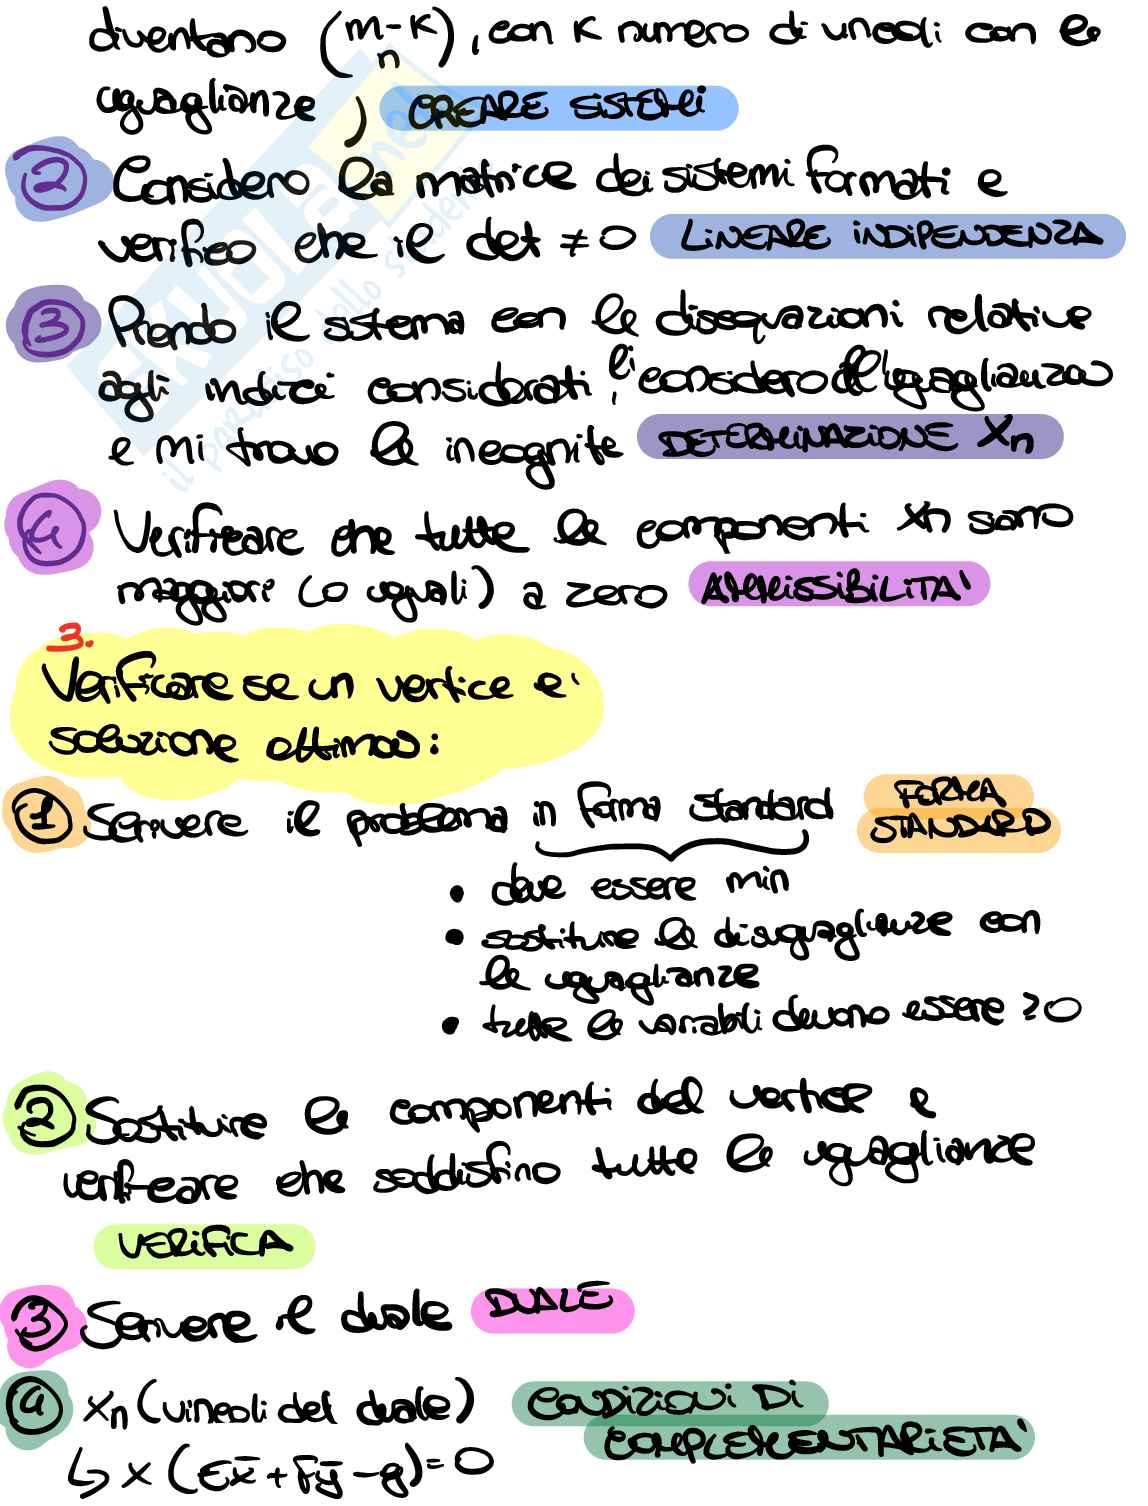 diventano (m-K n), con K numero di vincoli con le
uguaglianze ) CREARE SISTEMI
② Considero la matrice dei sistemi formati e
verifico che il det ≠ 0 LINEARE INDIPENDENZA
③ Prendo il sistema con le disequazioni relative
agli indici considerati, li considero all'uguaglianza
e mi trovo le incognite DETERMINAZIONE Xn
④ Verificare che tutte le componenti Xn siano
maggiori (o uguali) a zero AMMISSIBILITA'
3.
Verificare se un vertice e'
soluzione ottima:
① Scrivere il problema in forma standard FORMA
STANDARD
• deve essere min
• sostituire le disuguaglianze con
le uguaglianze
• tutte le variabili devono essere ≥0
② Sostituire le componenti del vertice e
verificare che soddisfino tutte le uguaglianze
VERIFICA
③ Scrivere il duale DUALE
④ Xn (vincoli del duale) CONDIZIONI DI
COMPLEMENTARIETA'
↳ x (Ex̄ + Fȳ - g) = 0
SKUOLA.net
il paradiso dello studente